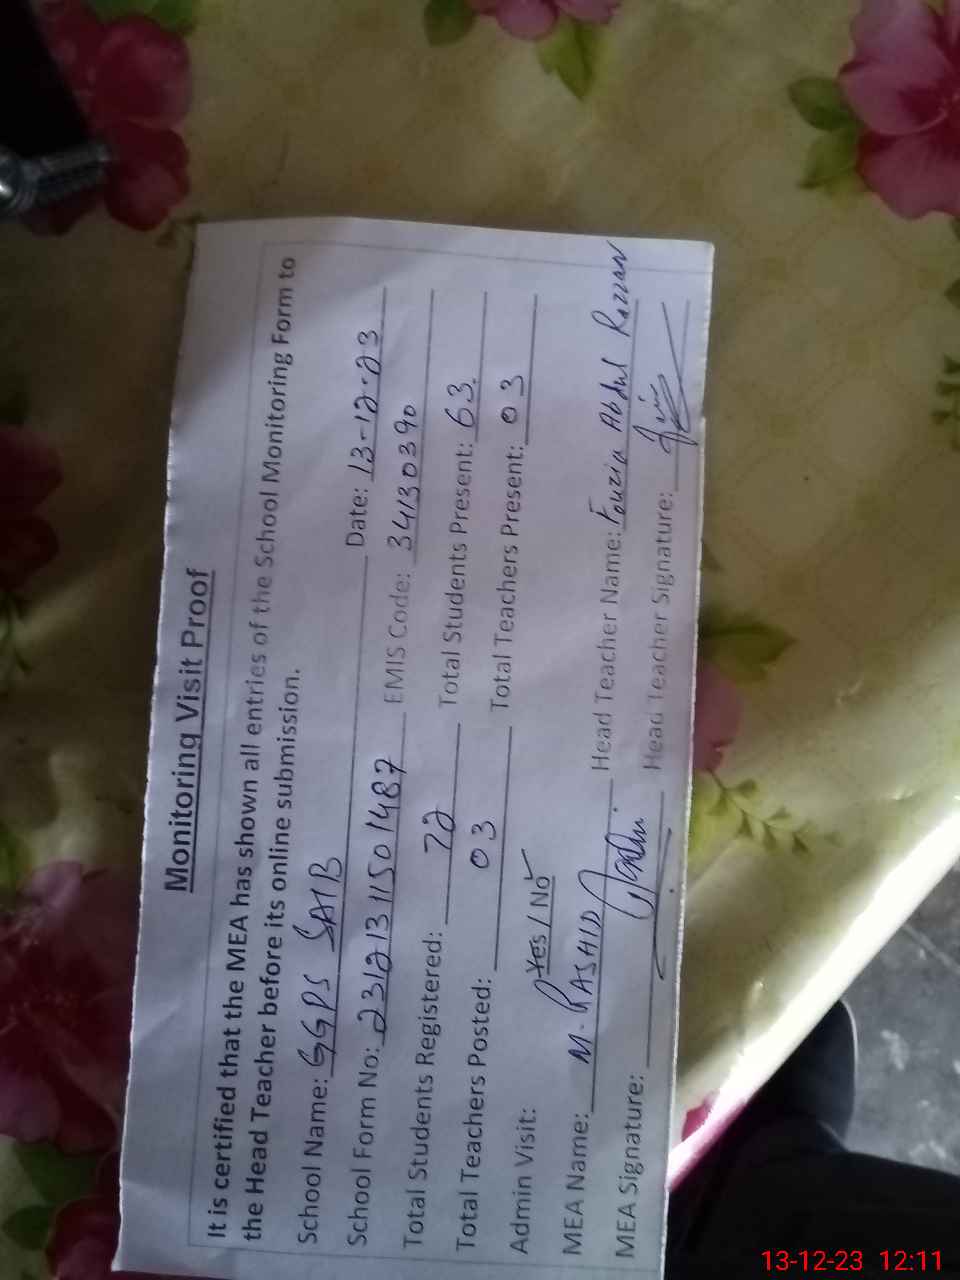 Monitoring Visit Proof
It is certified that the MEA has shown all entries of the School Monitoring Form to
the Head Teacher before its online submission.
School Name: GGPS SAIB Date: 13-12-23
School Form No: 23121311501487 EMIS Code: 34130390
Total Students Registered: 72 Total Students Present: 63
Total Teachers Posted: 03 Total Teachers Present: 03
Admin Visit: Yes / No
MEA Name: M. RASHID Head Teacher Name: Fouzia Abdul Razzaq
MEA Signature: Head Teacher Signature:
13-12-23 12:11